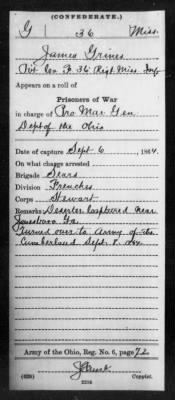 (CONFEDERATE.)
G 36 Miss.
James Grines
Pvt Co. F. 36 Regt. Miss. Inf.
Appears on a roll of
Prisoners of War
in charge of Pro Mar Gen
Dept of the Ohio
Date of capture Sept 6, 1864.
On what charges arrested
Brigade Sears
Division Frenches
Corps Stewart
Remarks Deserter Captured near
Jonesboro Ga.
Turned over to Army of the
Cumberland Sept. 8.
Army of the Ohio, Reg. No. 6, page 72
(639) Copyist.